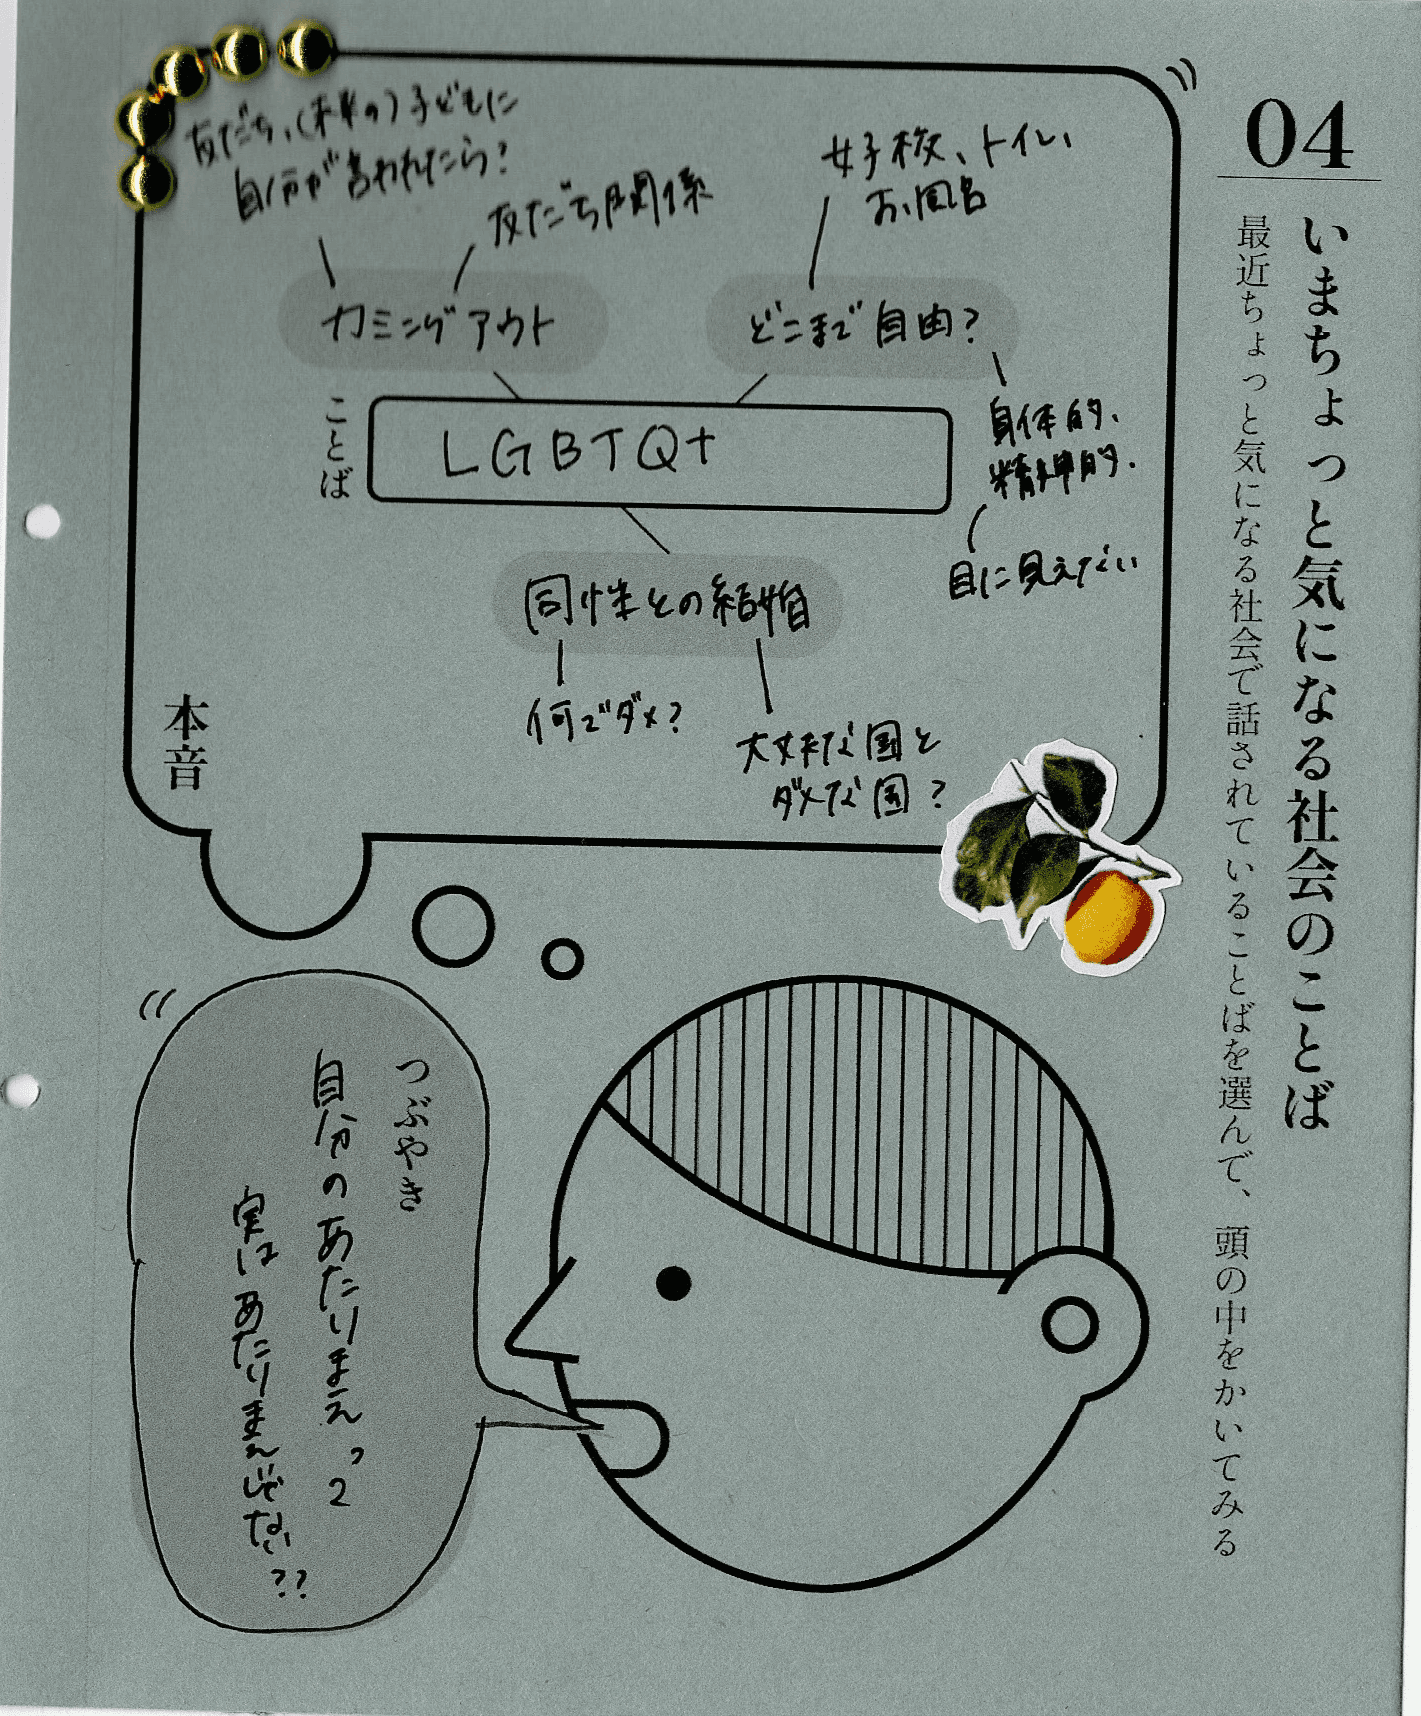 04
いまちょっと気になる社会のことば
最近ちょっと気になる社会で話されていることばを選んで、頭の中をかいてみる
友だち、(未来の)子どもに
自分が言われたら?
友だち関係
カミングアウト
女子校、トイレ、
お風呂
どこまで自由?
身体的、
精神的、
目に見えない
ことば
LGBTQ+
同性との結婚
何でダメ?
大丈夫な国と
ダメな国?
本音
つぶやき
自分のあたりまえって
実はあたりまえじゃない??